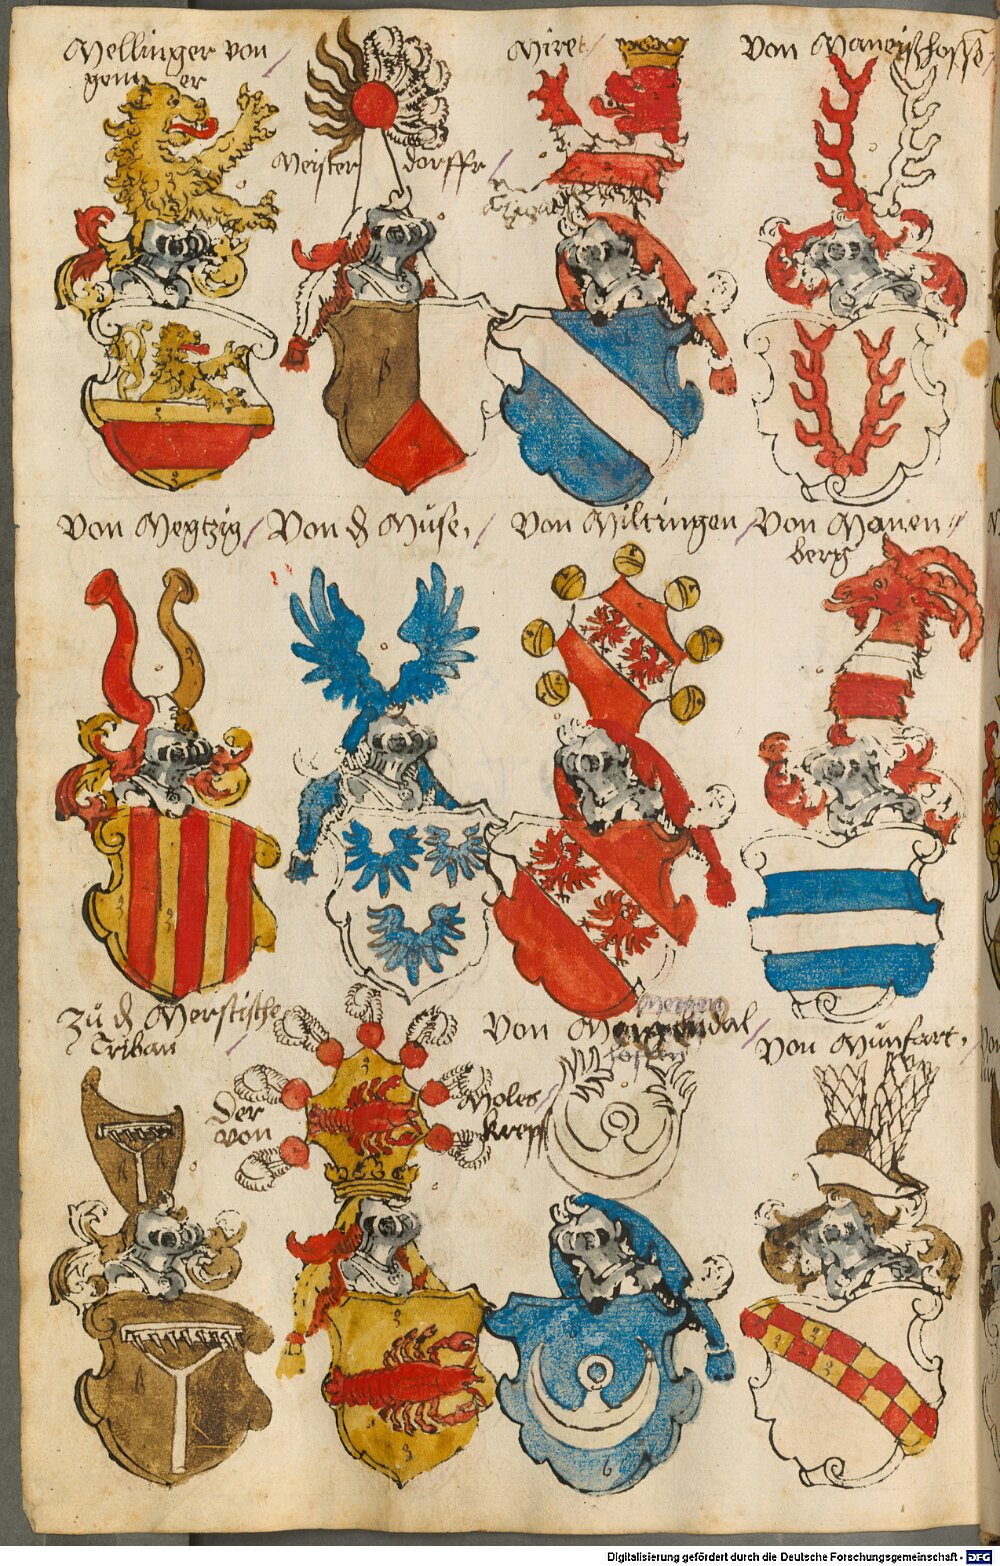 Mellinger von
Meister dorffr
Miret
Von Maneißhosse
Von Megtzig
Von d Muse.
Von Miltringen
Von Manen
berg
Zu d Merstische
Triban
Der
von
Moles
krepß
Von
Von Munfart.
Digitalisierung gefördert durch die Deutsche Forschungsgemeinschaft - DFG